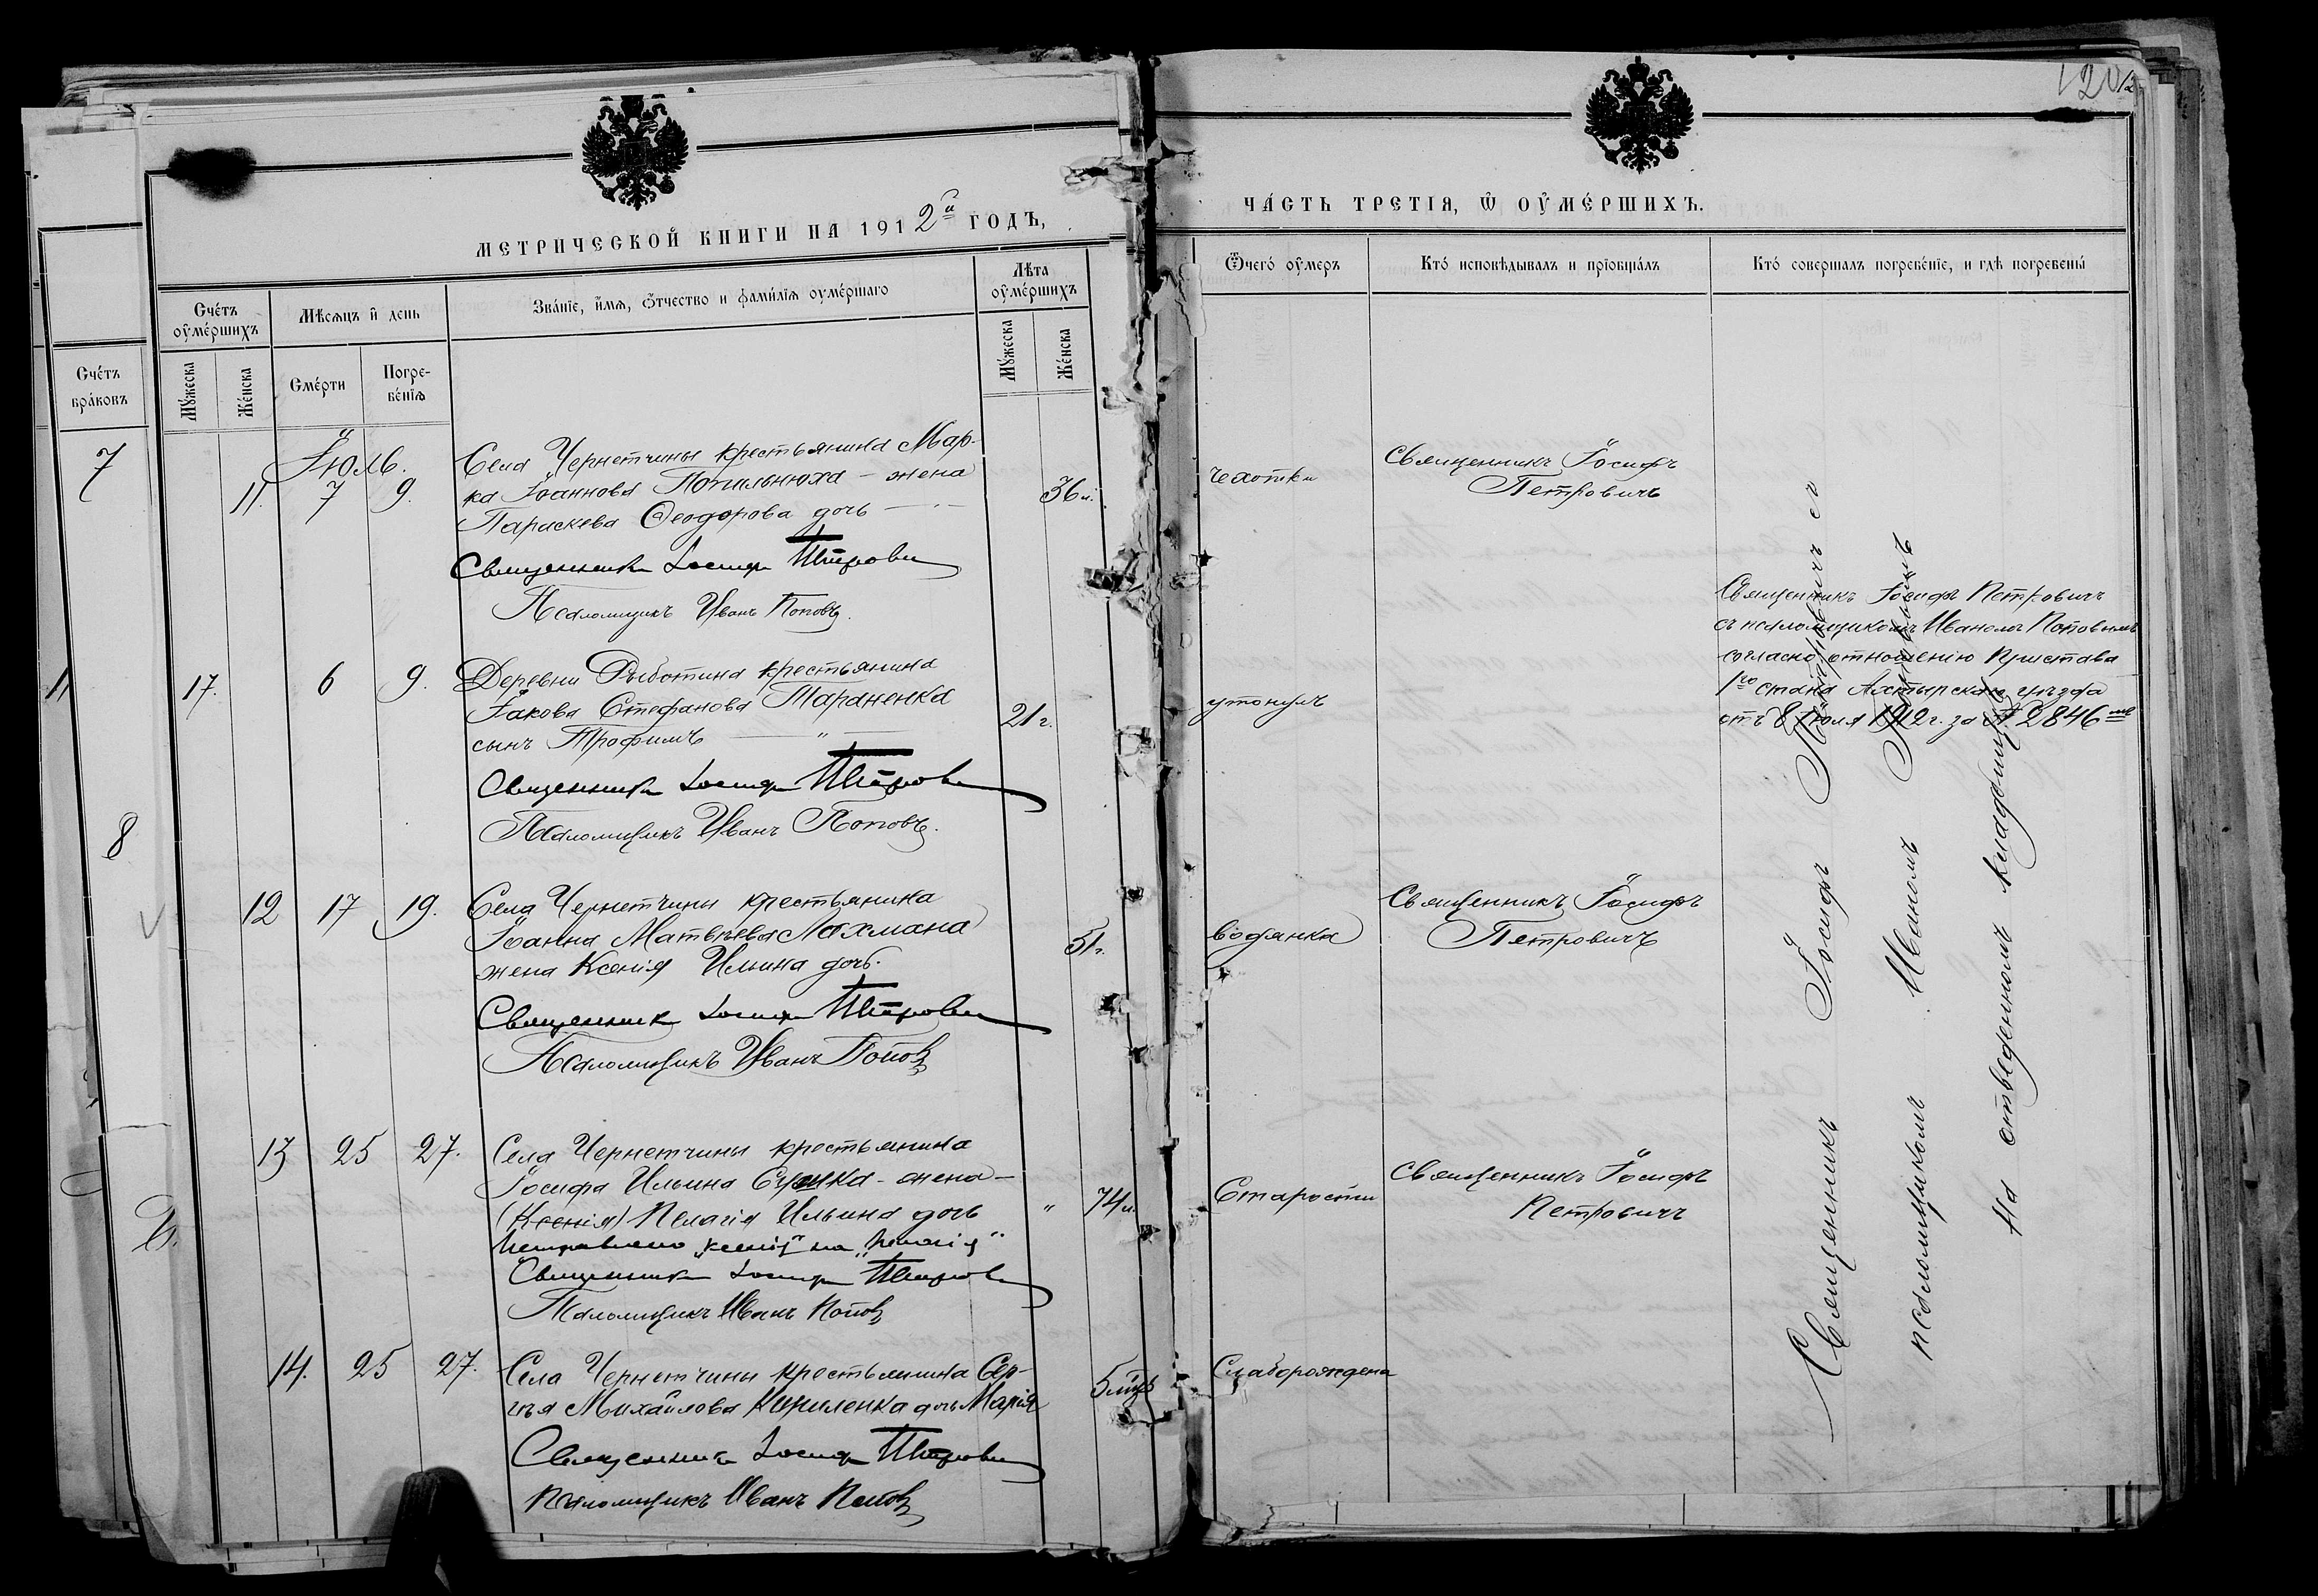 120
МЕТРИЧЕСКОЙ КНИГИ НА 1912й ГОДЪ,
ЧАСТЬ ТРЕТІЯ, Ѡ ОУМЕРШИХЪ.
Счетъ браковъ
Счетъ оумершихъ
Мужеска
Женска
Мѣсяцъ и день
Смерти
Погребенія
Званіе, имя, отчество и фамилія оумершаго
Лѣта оумершихъ
Мужеска
Женска
Ѿчего оумеръ
Кто исповѣдывалъ и пріобщалъ
Кто совершалъ погребеніе, и гдѣ погребены
7
Іюль.
11. 7 9.
Села Чернетчины крестьянина Мар-
ка Іоаннова Попильнюха – жена
Параскева Ѳеодорова дочь
36 л.
чахотки
Священникъ Іосифъ
Петровичъ
Священникъ Іосифъ Петрович
Псаломщикъ Иванъ Поповъ.
11
17. 6 9.
Деревни Рыботина крестьянина
Іакова Стефанова Тараненка
сынъ Трофимъ
21 г.
утонулъ
Священникъ Іосифъ Петровичъ
съ псаломщикомъ Иваномъ Поповымъ
согласно отношенію Пристава
1го стана Ахтырскаго уѣзда
отъ 8 Іюля 1912 г. за № 2846
Священникъ Іосифъ Петрович
Псаломщикъ Иванъ Поповъ.
8
12 17 19.
Села Чернетчины крестьянина
Іоанна Матвѣева Лахмана
жена Ксенія Ильина дочь.
51 г.
водянка
Священникъ Іосифъ
Петровичъ
Священникъ Іосифъ Петрович
Псаломщикъ Иванъ Поповъ
13 25 27.
Села Чернетчины крестьянина
Іосифа Ильина - жена –
(Ксенія) Пелагія Ильина дочь
" 74 л.
Старости
Священникъ Іосифъ
Петровичъ
Исправлено „Ксенія" на „Пелагія"
Священникъ Іосифъ Петрович
Псаломщикъ Иванъ Поповъ
14. 25 27.
Села Чернетчины крестьянина Сер-
гѣя Михайлова Кириленка дочь Марія
5 мцъ
Слаборождена
Священникъ Іосифъ Петрович
Псаломщикъ Иванъ Поповъ
Священникъ Іосифъ Петровичъ съ
псаломщикомъ Иваномъ Поповымъ
На отведенномъ кладбищѣ